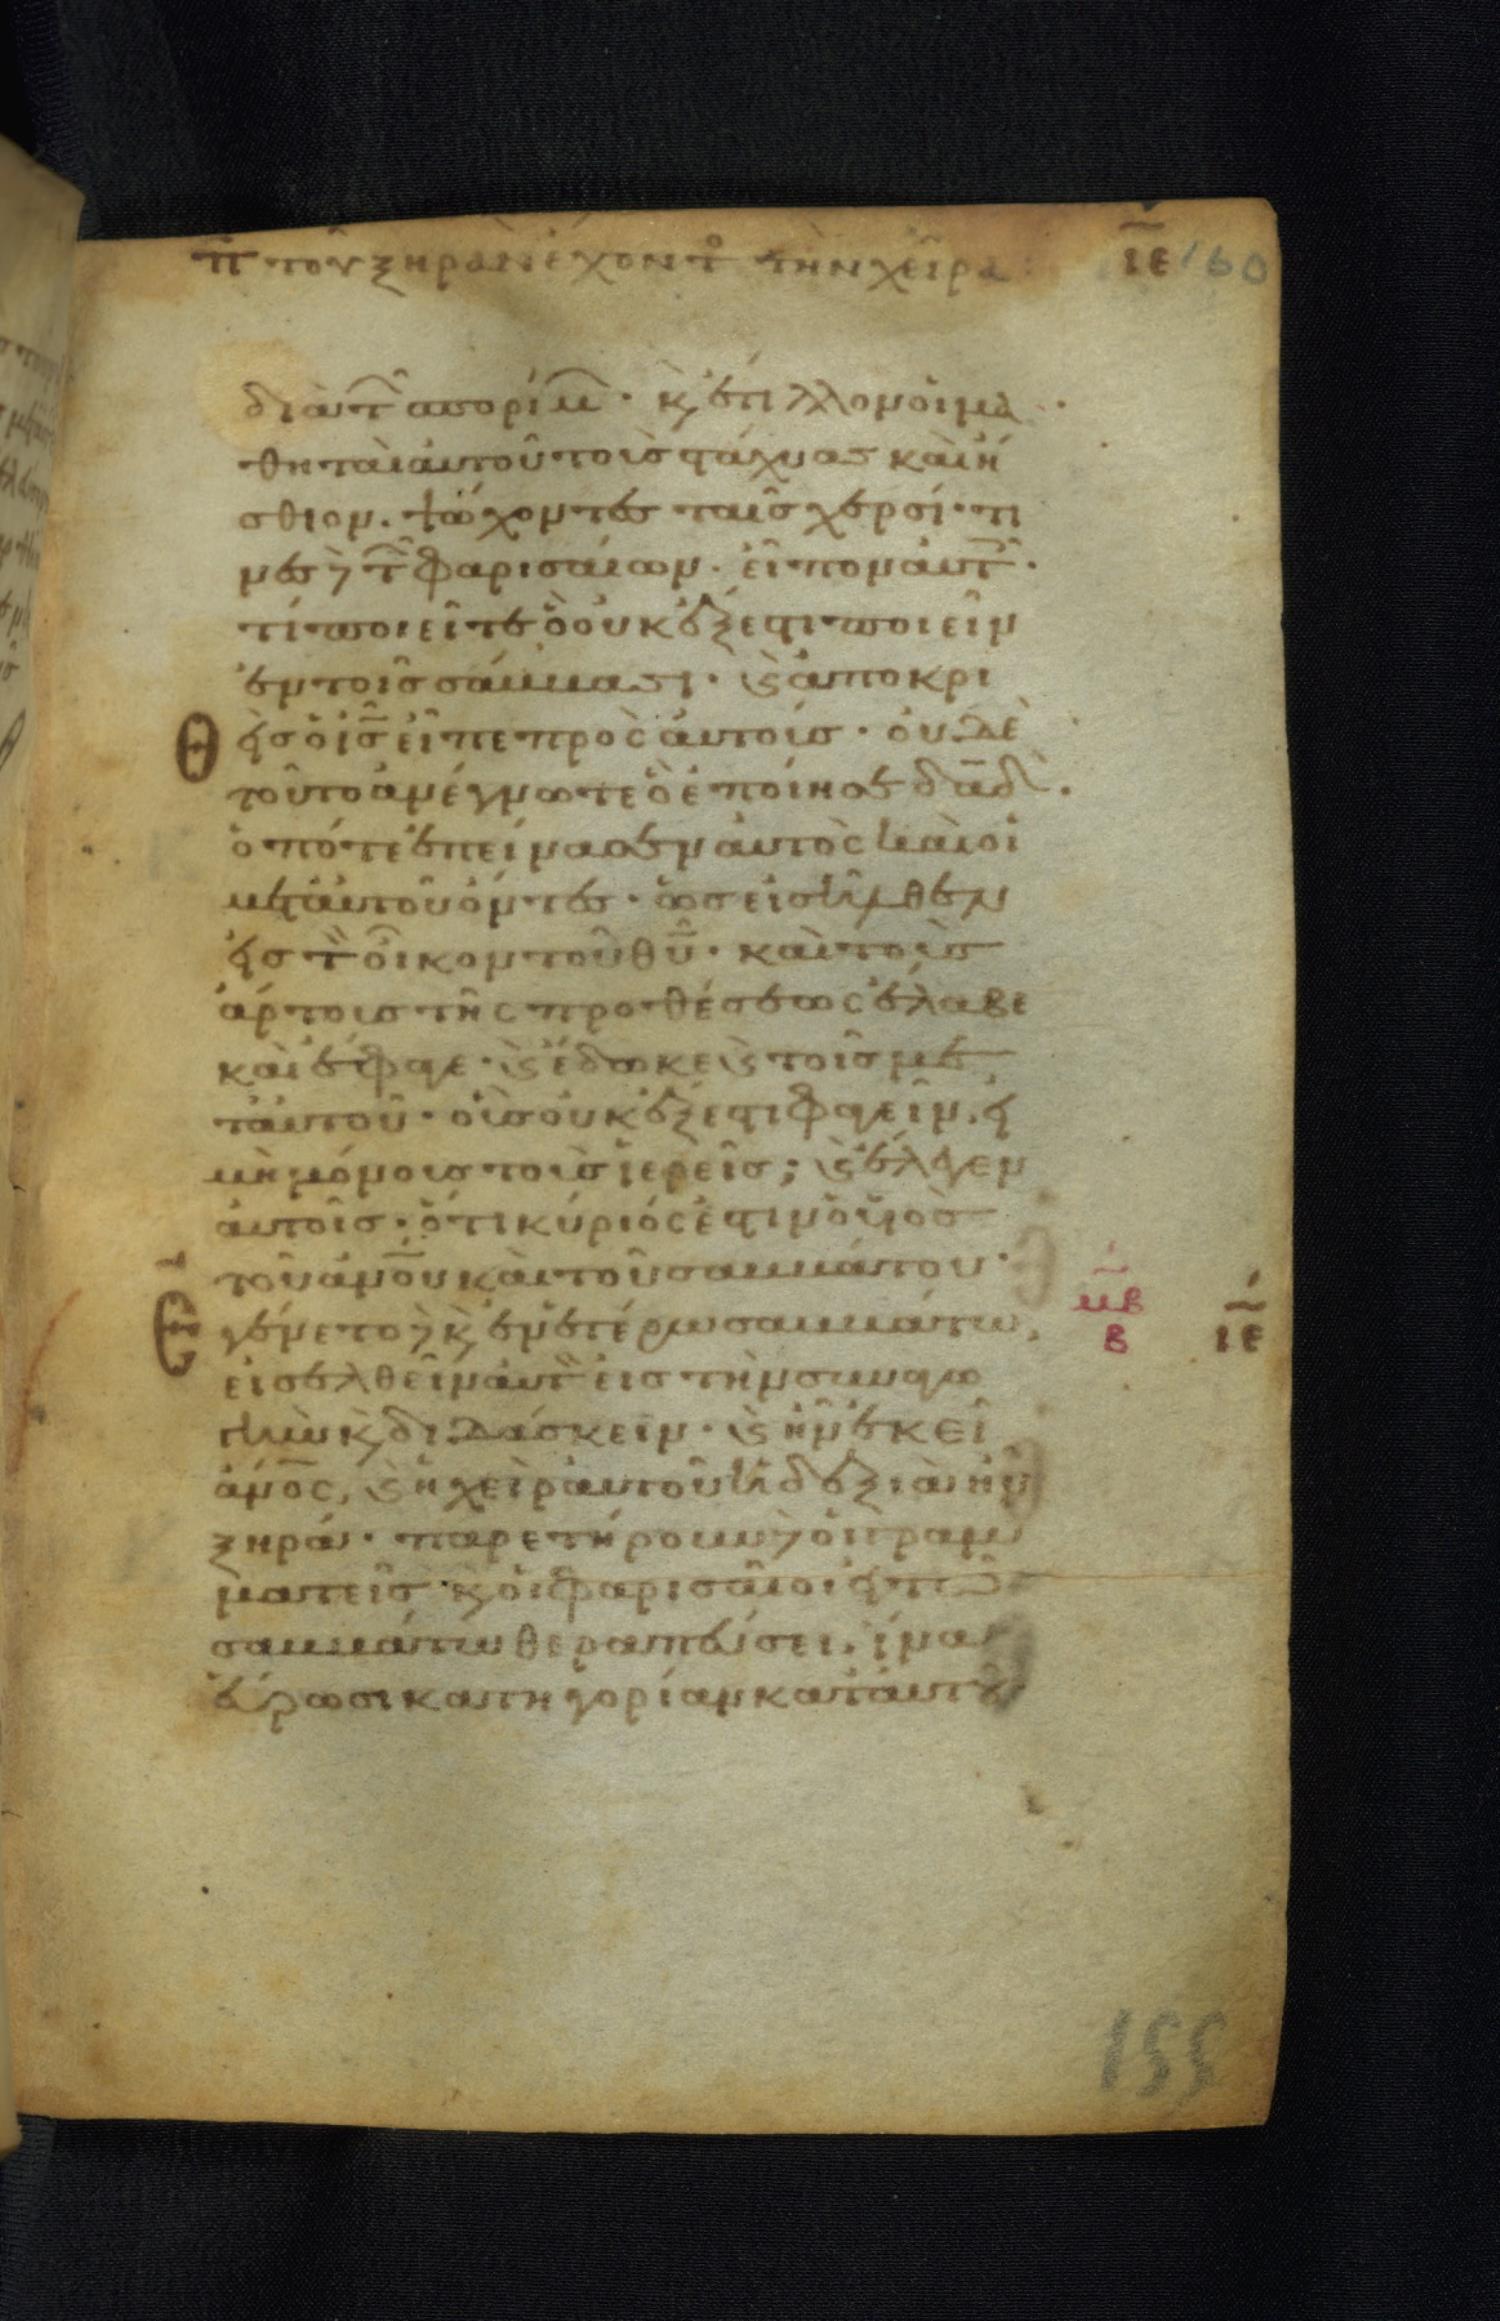 π τοῦ ξηρὰν ἔχοντ τὴν χεῖρα: ιε 160
διὰ τ σπορίμ· κ ἔτιλλον οἱ μα
θηταὶ αὐτοῦ τοὺς στάχυας καὶ ἤ
σθιον. ψώχοντες ταῖς χερσί· τι
νες δὲ τ φαρισαίων. εἶπον αὐτ·
τί ποιεῖτε ὃ οὐκ ἔξεστι ποιεῖν
ἐν τοῖς σάββασι· κ ἀποκρι
θεὶς ὁ ις εἶπε πρὸς αὐτούς· οὐδὲ
τοῦτο ἀνέγνωτε ὃ ἐποίησε δαδ·
ὁπότε ἐπείνασεν αὐτὸς καὶ οἱ
μετ αὐτοῦ ὄντες· ὡς εἰσῆλθεν
εἰς τ οἶκον τοῦ θυ· καὶ τοὺς
ἄρτους τῆς προθέσεως ἔλαβε
καὶ ἔφαγε· κ ἔδωκε κ τοῖς με
τ αὐτοῦ· οὓς οὐκ ἔξεστι φαγεῖν. εἰ
μὴ μόνους τοὺς ἱερεῖς; κ ἔλεγεν
αὐτοῖς· ὅτι κύριός ἐστιν ὁ υἱὸς
τοῦ ανου καὶ τοῦ σαββάτου·
Ἐγένετο δὲ κ ἐν ἑτέρω σαββάτω, μβ β ιε
εἰσελθεῖν αὐτ εἰς τὴν συναγω
γὴν κ διδάσκειν· κ ἦν ἐκεῖ
ανος, κ ἡ χεὶρ αὐτοῦ ἡ δεξιὰ ἦν
ξηρά· παρετήρουν δὲ οἱ γραμ
ματεῖς κ οἱ φαρισαῖοι εἰ τῶ
σαββάτω θεραπεύσει. ἵνα
εὕρωσι κατηγορίαν κατ αὐτοῦ
155